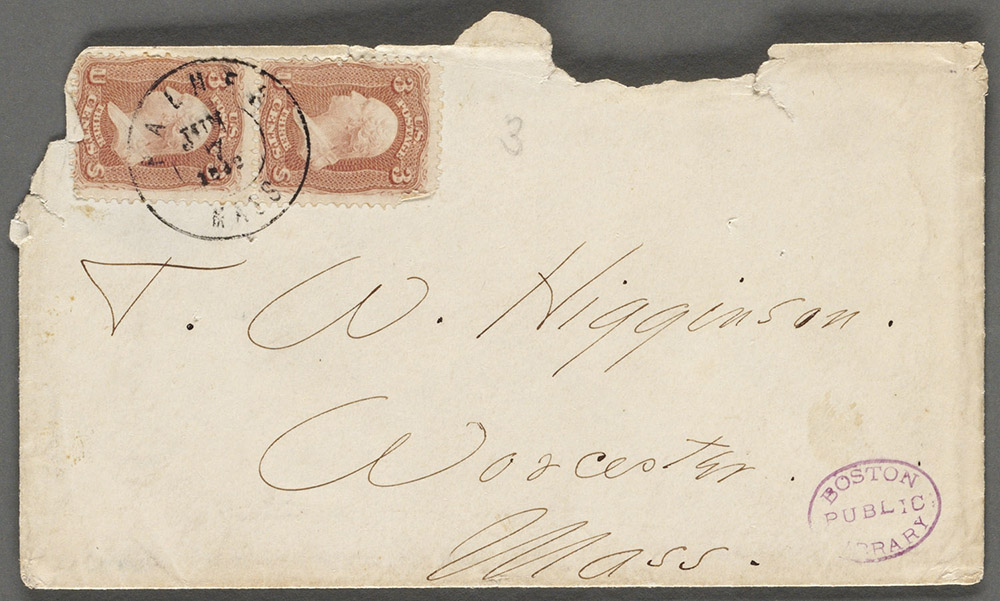 U 3
THREE CENTS
U.S. POSTAGE
S 3
U 3
THREE CENTS
U.S. POSTAGE
S 3
JUN
7
MASS
3
T. W. Higginson.
Worcester.
Mass.
BOSTON
PUBLIC
LIBRARY